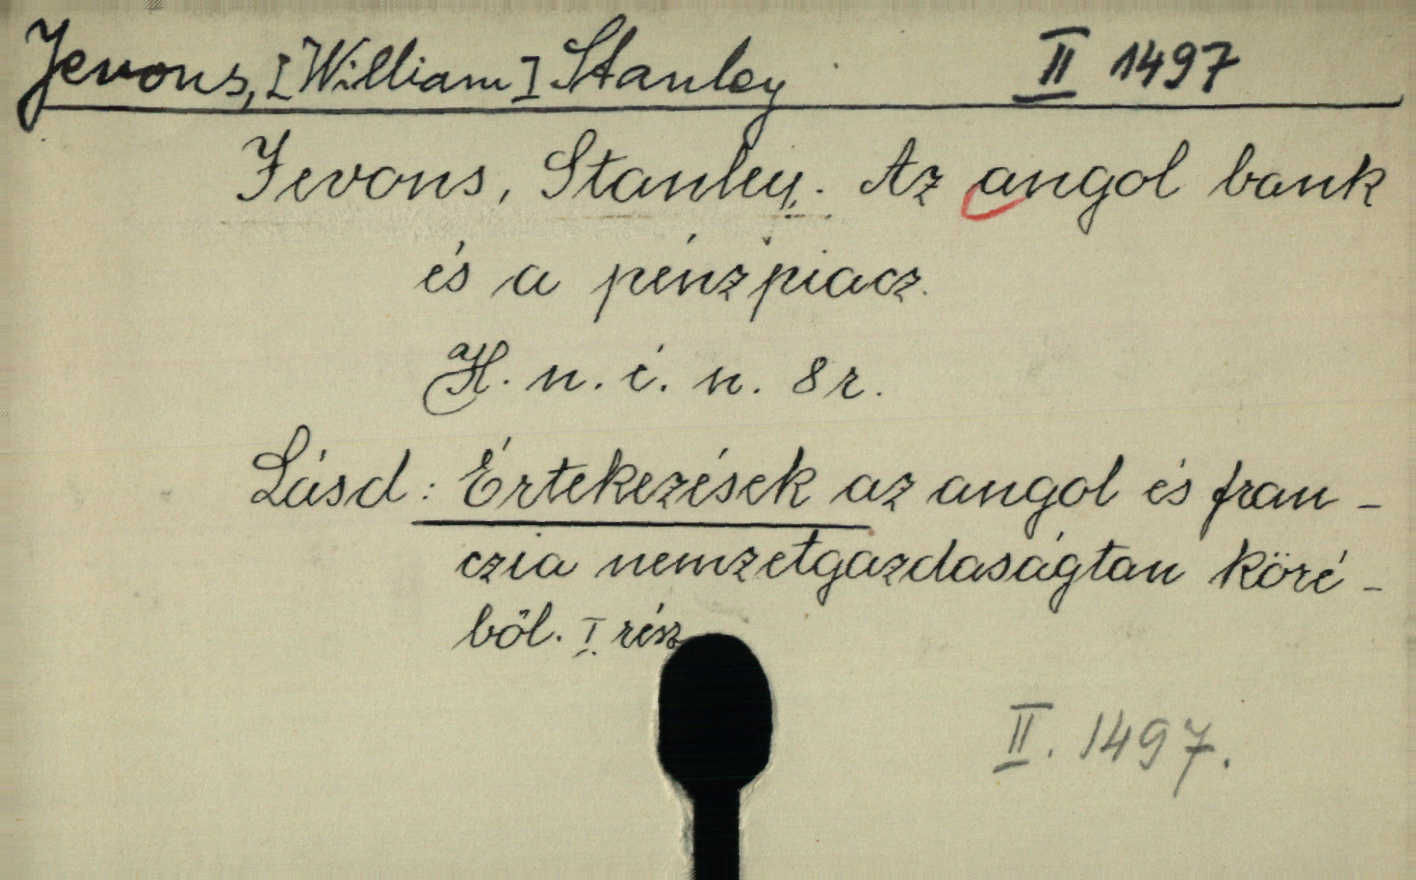 Jevons, [William] Stanley II 1497
Jevons, Stanley. Az angol bank
és a pénzpiacz.
H. n. é. n. 8r.
Lásd: Értekezések az angol és fran-
czia nemzetgazdaságtan köré-
ből. I. rész
II. 1497.